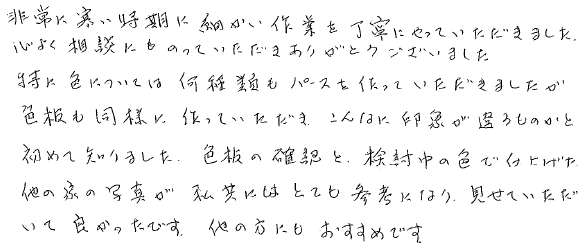 非常に寒い時期に細かい作業を丁寧にやっていただきました。
心よく相談にものっていただきありがとうございました
特に色については何種類もパースを作っていただきましたが
色板も同様に作っていただき こんなに印象が違うものかと
初めて知りました。色板の確認と、検討中の色で仕上げた
他の家の写真が私共にはとても参考になり、見せていただ
いて良かったです。他の方にもおすすめです